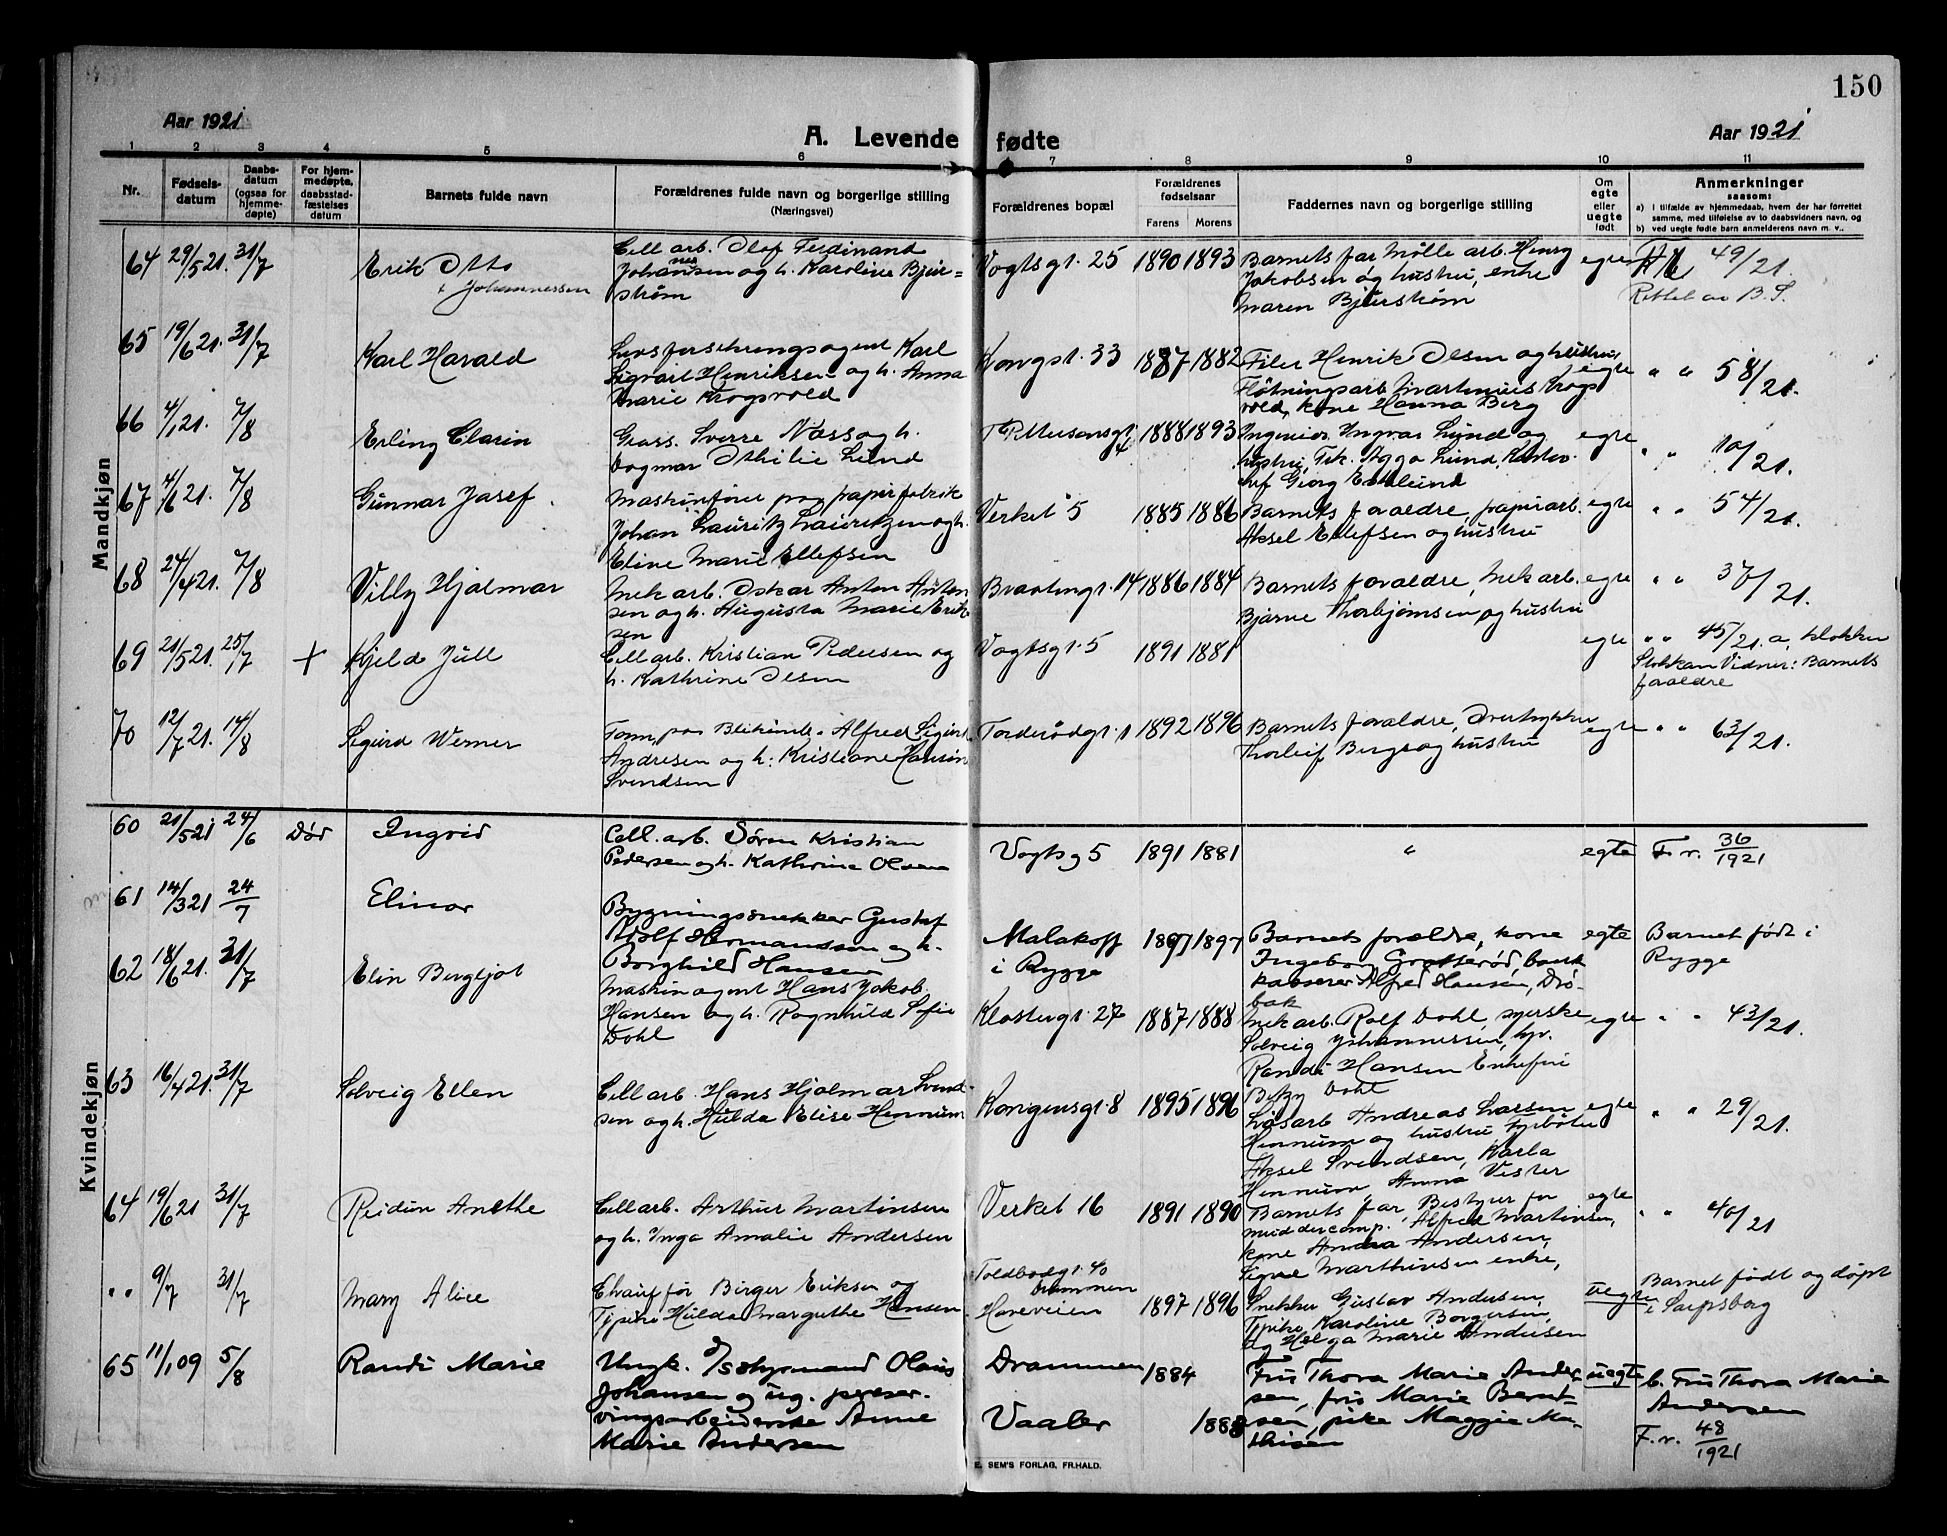 150
Aar 1921
A. Levende fødte
Aar 1921
1 2 3 4 5 6 7 8 9 10 11
Nr.
Fødsels-
datum
Daabs-
datum
(ogsaa for
hjemme-
døpte)
For hjem-
medøpte,
daabsstad-
fæstelses
datum
Barnets fulde navn
Forældrenes fulde navn og borgerlige stilling
(Næringsvei)
Forældrenes bopæl
Forældrenes
fødselsaar
Farens Morens
Faddernes navn og borgerlige stilling
Om
egte
eller
uegte
født
Anmerkninger
saasom:
a) I tilfælde av hjemmedaab, hvem der har forrettet
samme, med tilføielse av to daabsvidners navn, og
b) ved uegte fødte barn anmelderens navn m. v..
Mandkjøn
64 29/5 21. 31/7
Erik Otto
Johannessen
Cell arb. Olof Ferdinand
Johansen og h. Karoline Bjur=
strøm
Vogtsgt. 25 1890 1893
Barnets far Mølle arb. Henry
Jakobsen og hustru, enke
Maren Bjurstrøm
egte
49/21.
Rettet av B.S.
65 19/6 21. 31/7
Karl Harald
Livsforsikringsagent Karl
Sigvart Henriksen og h. Anna
Marie Krogsvold
Kongsgt. 33 1887 1882
Filer Henrik Olsen og hustru,
Fløtningsarb Martinius Krogs
vold, kone Hanna Berg
egte
" " 58/21.
66 4/1 21. 7/8
Erling Clarin
Gross. Sverre Næss og h.
Dagmar Othilie Lund
1888 1893
Ingeniør Ingvar Lund og
hustru, Frk. Agga Lund,
egte
" " 10/21.
67 4/6 21. 7/8
Gunnar Josef.
Maskinfører paa papirfabrik
Johan Lauritz Lauritzen og h.
Eline Marie Ellefsen
Verket 5 1885 1886
Barnets foraldre, papirarb.
Aksel Ellefsen og hustru
egte
" " 54/21.
68 24/4 21. 7/8
Villy Hjalmar
Mek arb. Oskar Anton Anton
sen og h. Augusta Marie Erik
sen
Braatengt. 14 1886 1884
Barnets foraldre, Mek arb.
Bjarne Thorbjørnsen og hustru
egte
" " 37/21.
69 21/5 21. 25/7 +
Kjeld Jull
Cell arb. Kristian Pedersen og
h. Kathrine Olsen
Vogtsgt. 5 1891 1881
egte
" " 45/21. a, klokker
Slokkan Vidner: Barnets
foraldre
70 12/7 21. 14/8
Sigurd Werner
Alfred Sigurd
Andresen og h. Kristiane
Svendsen
Torderødgt. 1 1892 1896
Barnets foraldre,
Thorleif Berger og hustru
egte
" " 63/21.
Kvindekjøn
60 21/5 21 24/6 Død
Ingrid
Cell. arb. Søren Kristian
Pedersen og h. Kathrine Olsen
Vogtsg 5 1891 1881
"
egte
F. nr. 36/1921
61 14/3 21 24/7
Elinor
Bygningssnekker Gustaf
Adolf Hermansson og h.
Borghild Hansen
Malakoff
i Rygge
1897 1897
Barnets forældre, kone
Ingeborg Gretterød, bank
kasserer Alfred Hansen, Drø-
bak
egte
Barnet født i
Rygge
62 18/6 21. 31/7
Elin Bergljot
Maskin agent Hans Jakob
Hansen og h. Ragnhild Sofie
Dohl
Klostergt. 27 1887 1888
Mek arb. Rolf Dohl, syerske
Solveig Johannessen,
Randi Hansen Enkefru
Betzy Dohl
egte
" " 43/21.
63 16/4 21. 31/7
Solveig Ellen
Cell arb. Hans Hjalmar Svend-
sen og h. Hulda Elise Hennum
Kongensgt. 8 1895 1896
Løsarb Andreas Larsen
Hennum og hustru Fyrbøter
Aksel Svendsen, Karla
Hennum Anna Vister
egte
" " 29/21.
64 19/6 21 31/7
Reidun Anethe
Cell arb. Arthur Martinsen
og h. Inga Amalie Andersen
Verket 16 1891 1890
Barnets far, Bestyrer for
muddercomp. Alfred Martinsen,
kone Andrea Andersen,
Signe Marthinsen enke,
egte
" " 40/21
" 9/7 31/7
Mary Alice
Chauffør Birger Eriksen og
Tjpike Hulda Margrethe Hansen
Toldbodgt. 40
Drammen
Haneveien
1897 1896
Snekker Gustav Andersen,
Tjpike, Karoline Borgersen,
og Helga Marie Andersen
uegte
Barnet født og døpt
i Sarpsborg
65 11/1 09 5/8
Randi Marie
Ungk. styrmand Olaus
Johansen og ug. preser-
vingsarbeiderske Anne
Marie Andersen
Drammen
Vaaler
1884
1888
Fru Thora Marie Ander-
sen, fru Marie Bernt-
sen, pike Maggie Ma-
thisen
uegte
b. Fru Thora Marie
Andersen
F. nr. 48/1921
E. SEM'S FORLAG, FR.HALD.